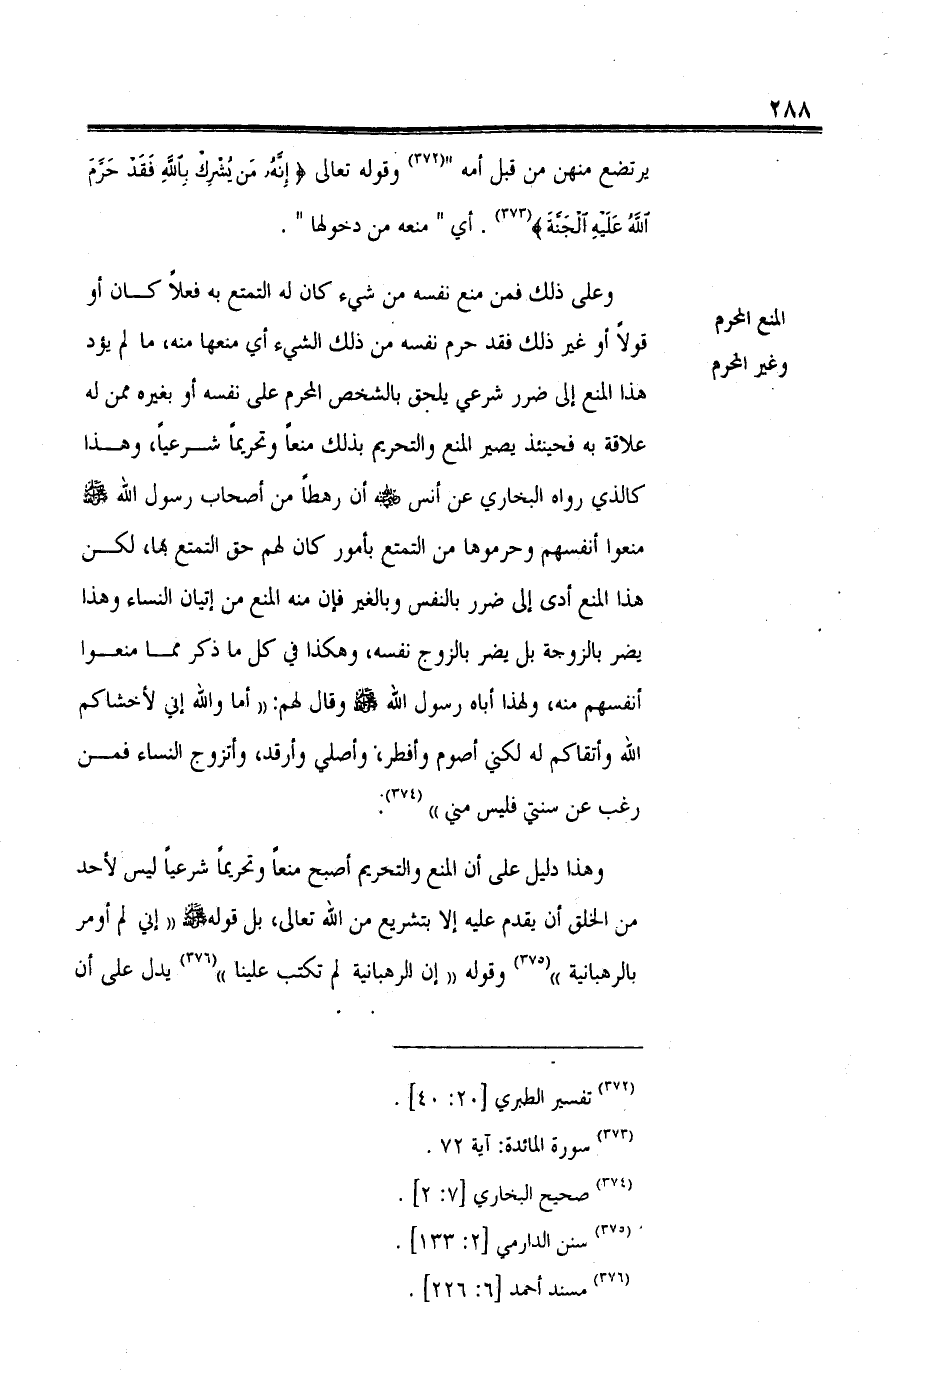 ٢٨٨
يرتضع منهن من قبل أمه "(٣٧٢) وقوله تعالى ﴿ إِنَّهُۥ مَن يُشْرِكْ بِٱللَّهِ فَقَدْ حَرَّمَ
ٱللَّهُ عَلَيْهِ ٱلْجَنَّةَ ﴾(٣٧٣) . أي " منعه من دخولها " .
المنع المحرم
وغير المحرم
وعلى ذلك فمن منع نفسه من شيء كان له التمتع به فعلاً كـــان أو
قولاً أو غير ذلك فقد حرم نفسه من ذلك الشيء أي منعها منه، ما لم يؤد
هذا المنع إلى ضرر شرعي يلحق بالشخص المحرم على نفسه أو بغيره ممن له
علاقة به فحينئذ يصير المنع والتحريم بذلك منعاً وتحريماً شـــرعياً، وهـــذا
كالذي رواه البخاري عن أنس ﵁ أن رهطاً من أصحاب رسول الله ﷺ
منعوا أنفسهم وحرموها من التمتع بأمور كان لهم حق التمتع بها، لكـــن
هذا المنع أدى إلى ضرر بالنفس وبالغير فإن منه المنع من إتيان النساء وهذا
يضر بالزوجة بل يضر بالزوج نفسه، وهكذا في كل ما ذكر ممـــا منعـــوا
أنفسهم منه، ولهذا أباه رسول الله ﷺ وقال لهم: (( أما والله إني لأخشاكم
الله وأتقاكم له لكني أصوم وأفطر، وأصلي وأرقد، وأتزوج النساء فمـــن
رغب عن سنتي فليس مني ))(٣٧٤).
وهذا دليل على أن المنع والتحريم أصبح منعاً وتحريماً شرعياً ليس لأحد
من الخلق أن يقدم عليه إلا بتشريع من الله تعالى، بل قوله ﷺ (( إني لم أومر
بالرهبانية ))(٣٧٥) وقوله (( إن الرهبانية لم تكتب علينا ))(٣٧٦) يدل على أن
(٣٧٢) تفسير الطبري [٢٠: ٤٠] .
(٣٧٣) سورة المائدة: آية ٧٢ .
(٣٧٤) صحيح البخاري [٧: ٢] .
(٣٧٥) سنن الدارمي [٢: ١٣٣] .
(٣٧٦) مسند أحمد [٦: ٢٢٦] .